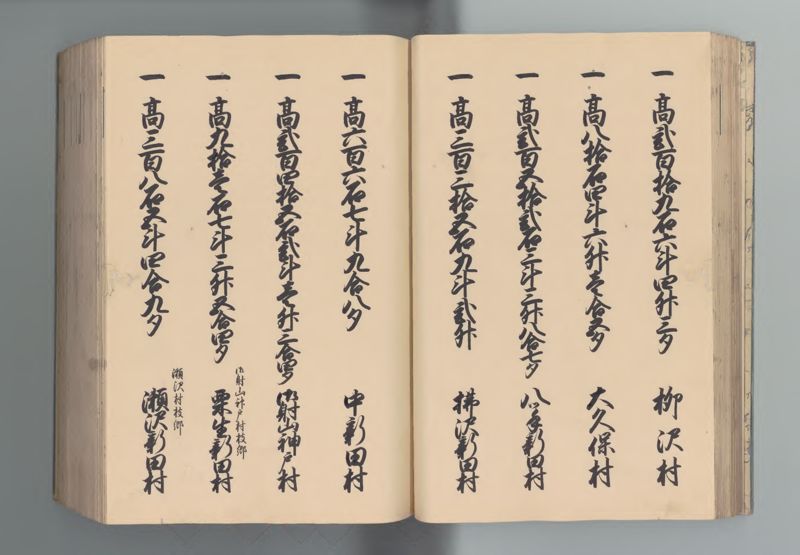 一 高弐百拾九石六斗四升三夕 柳沢村
一 高八拾石四斗六升壱合五夕 大久保村
一 高弐百五拾弐石三斗三升八合七夕 八手新田村
一 高三百三拾五石九斗弐升 拂沢新田村
一 高六百六石七斗九合八夕 中新田村
一 高弐百四拾五石弐斗壱升三合四夕 御射山神戸村
一 高九拾壱石七斗三升五合四夕
御射山神戸村枝郷
栗生新田村
一 高三百八石五斗四合九夕
瀬沢村枝郷
瀬沢新田村